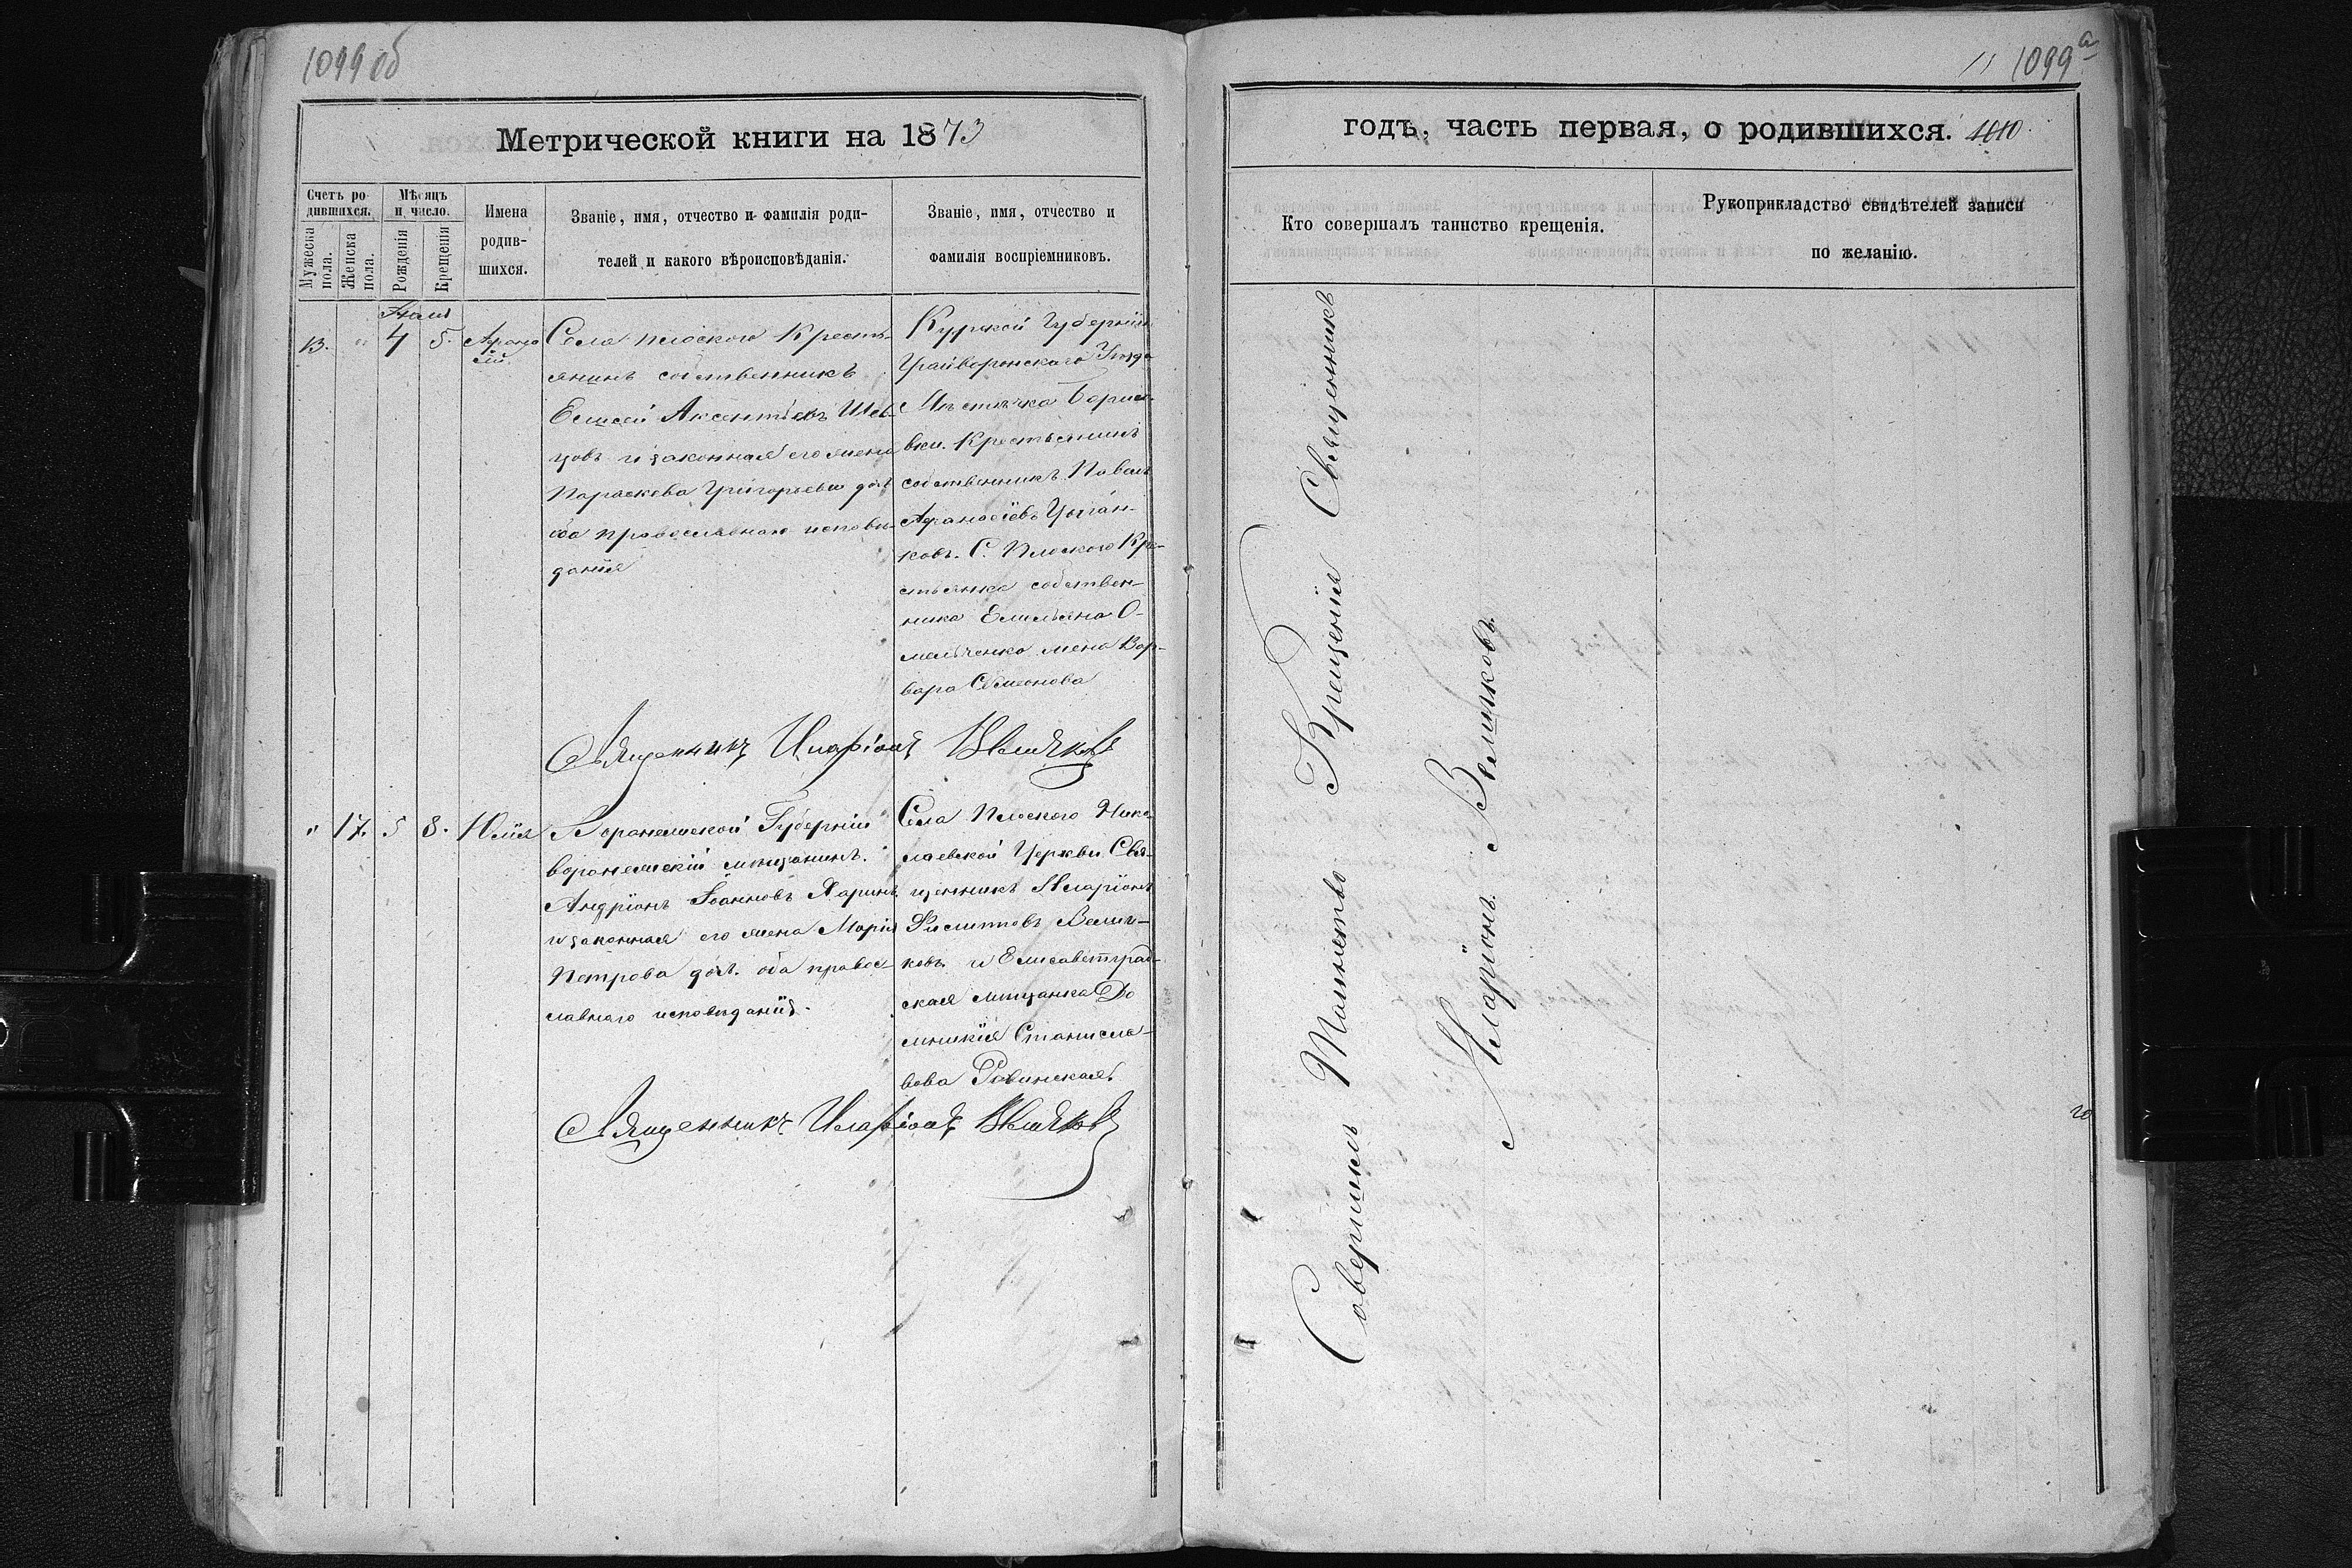 1099 об
Метрической книги на 1873
Счетъ ро-
дившихся.
Мѣсяцъ
и число.
Мужеска
пола.
Женска
пола.
Рожденія
Крещенія
Имена
родив-
шихся.
Званіе, имя, отчество и фамилія роди-
телей и какого вѣроисповѣданія.
Званіе, имя, отчество и
фамилія воспріемниковъ.
13. " 4 5.
Села Плоского Кресть-
янинъ собственникъ
Елисей Аксентіевъ Шев-
цовъ и законная его жена
Параскева Григорьева
оба православнаго исповѣ-
данія
Курской Губерніи
Грайворонскаго Уѣзда
Мѣстечка Борисо-
вки. Крестьянинъ
собственникъ Павелъ
Афанасіевъ Цыган-
ковъ. С. Плоского Кре-
стьянка собствен-
ника Емиліана О-
мельченко жена Вар-
вара Симеонова
Священникъ Иларіонъ Величковъ
" 17. 5 8. Юлія
Воронежской Губерніи
воронежскій мѣщанинъ.
Андріонъ Іоанновъ Ларинъ
и законная его жена Марія
Петрова оба правос-
славнаго исповѣданія.
Села Плоского Нико-
лаевской Церкви Свя-
щенникъ Иларіонъ
Филипповъ Велич-
ковъ и Елисаветград-
ская мѣщанка До
мникія Станисла-
вова Равинская.
Священникъ Иларіонъ Величковъ
11 1099а
годъ, часть первая, о родившихся. 1010.
Кто совершалъ таинство крещенія.
Рукоприкладство свидѣтелей записи
по желанію.
Совершилъ Таинство Крещенія Священникъ
Иларіонъ Величковъ.